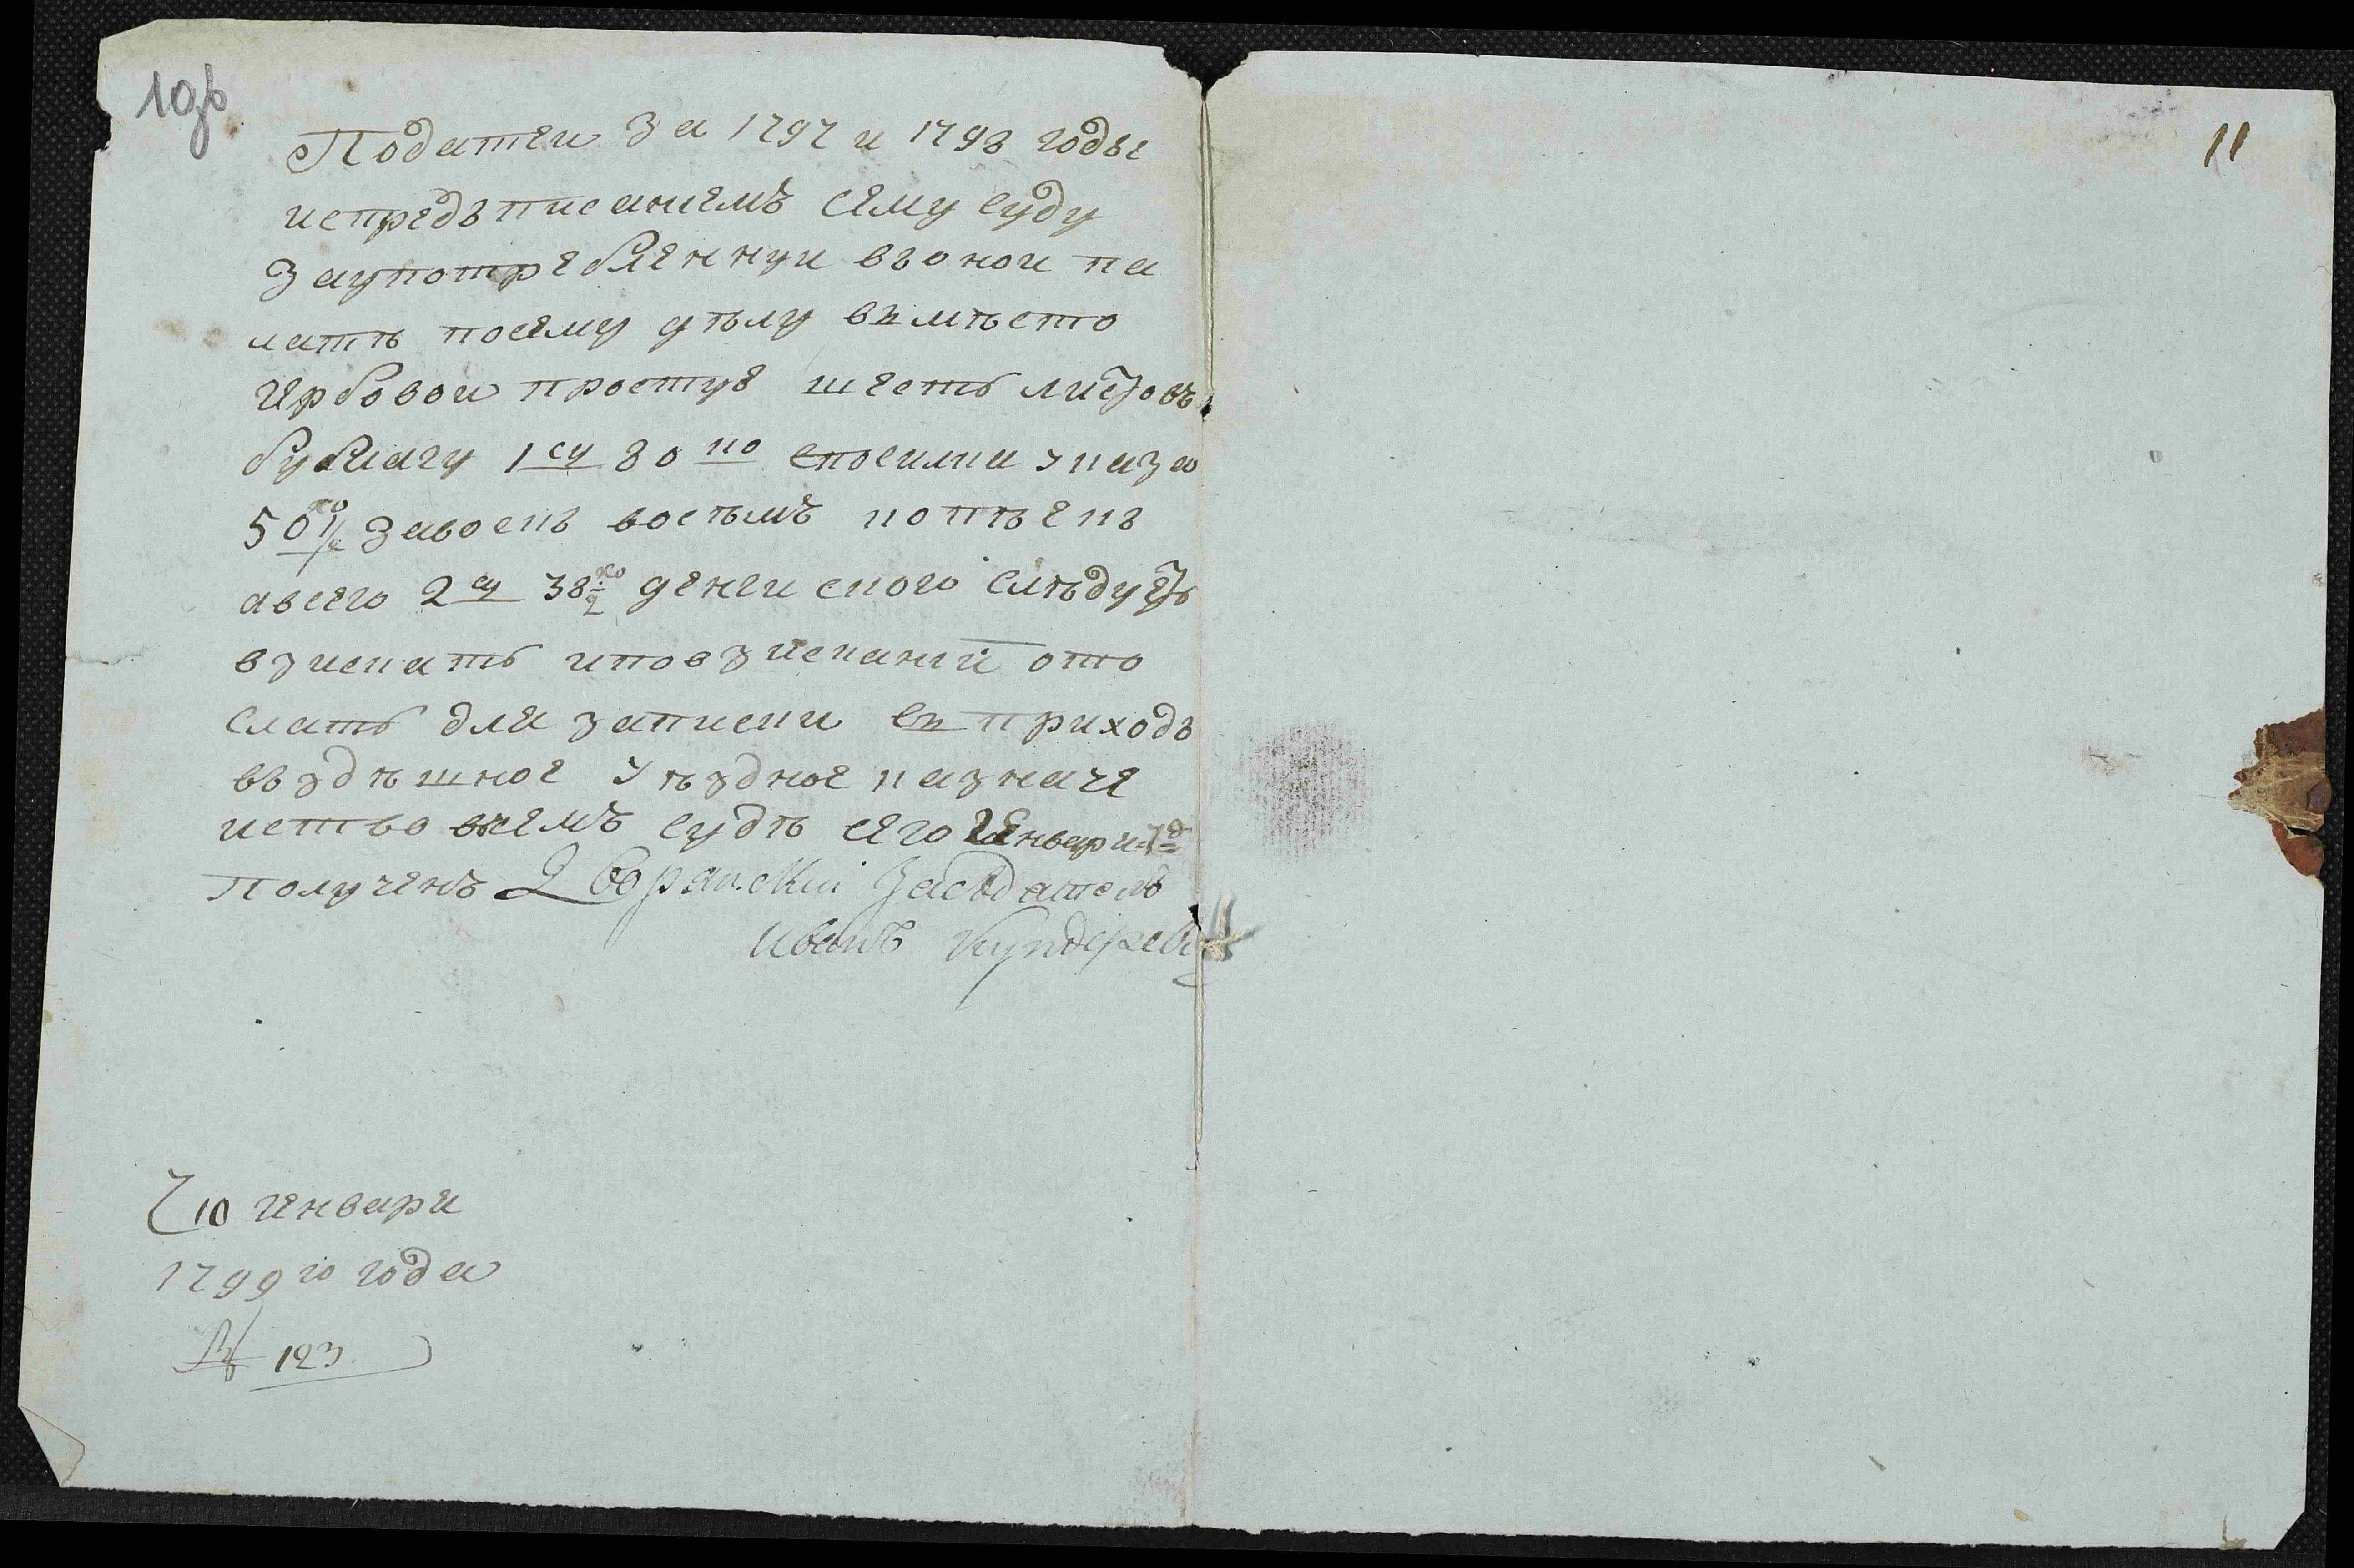 10об
11
Податей за 1797 и 1798 годы
ис предъписаниемъ сему суду
за употребленную въ оной па
лате по сему делу въ место
гербовой простую шесть листовъ
бубмагу 1 су 80 ко с посилки указа
50 ко 1/2 за воскъ восемъ копеекъ
а всего 2 су 38 ко 1/2 денги с кого следуетъ
взискать и по взискании ото
слать для записки въ приходъ
въ здешное уездное казначе
йство в семъ суде сего генваря 7 д
полученъ Дворянский Заседатель
Иванъ
10 генваря
1799 го года
№ 123